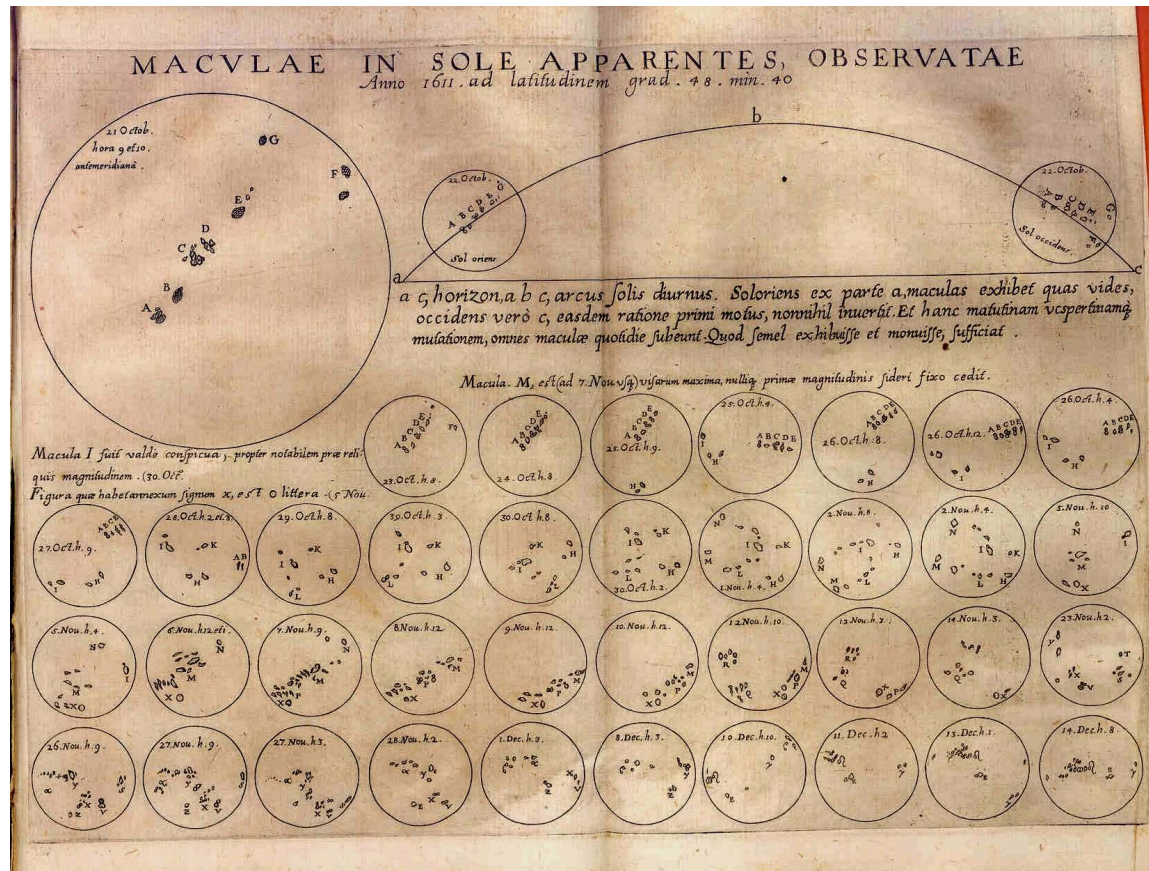 MACVLAE IN SOLE APPARENTES, OBSERVATAE
Anno 1611. ad latitudinem grad. 48. min. 40
21 Octob.
hora 9 et 10.
antemeridiana.
G
F
E
D
C
B
A
b
22. Octob.
A B C D E G
Sol oriens
22. Octob.
A B C D E G
Sol occidens
a
c
a c, horizon, a b c, arcus solis diurnus. Sol oriens ex parte a, maculas exhibet quas vides,
occidens verò c, easdem ratione primi motus, nonnihil inuertit. Et hanc matutinam vespertinamq̃
mutationem, omnes maculæ quotidie subeunt. Quod semel exhibuisse et monuisse, sufficiat.
Macula. M, est (ad 7. Nou vsq̃) visarum maxima, nulliq̃ primæ magnitudinis sideri fixo cedit.
Macula I fuit valdè conspicua, propter notabilem præ reli-
quis magnitudinem. (30. Oct.
Figura quæ habet annexum signum x, est O littera. (5 Nou.
A B C D E F
23. Oct. h. 8.
A B C D E
24. Oct. h. 8
A B C D E
25. Oct. h. 9.
H
25. Oct. h. 4.
I A B C D E
H
A B C D E
26. Oct. h. 8.
H
26. Oct. h. 12. A B C D E
I
26. Oct. h. 4.
A B C D E
I H
A B C E
27. Oct. h. 9.
I H
28. Oct. h. 2. et 3.
I K
A B
H
29. Oct. h. 8.
K
I
H
L
30. Oct. h. 3
I K
H
L
30. Oct. h. 8.
K
I H
L
I K
L H
30. Oct. h. 2.
N
I K
M
L H
1. Nou. h. 4.
2. Nou. h. 8.
I K
N
M L H
2. Nou. h. 4.
N
I K
M
L H
5. Nou. h. 10
N
I
M
O X
5. Nou. h. 4.
N
I
M
X O
6. Nou. h. 12 et 1.
N
M
X O
7. Nou. h. 9.
N
M
X O
8 Nou. h. 12
M
P
O X
9. Nou. h. 12.
M
X O
10. Nou. h. 12.
M
P
X O
12 Nou. h. 10.
R M
P
Q X O
13. Nou. h. 2.
R
Q O X P
14. Nou. h. 3.
Q
O X
23. Nou. h. 2.
γ
T
S
V
26. Nou. h. 9.
γ
α S
X V
Z
27. Nou. h. 9.
γ
α S
X V
Z
27. Nou. h. 3.
α γ
X
Z
28. Nou. h. 2.
γ
X
V
1. Dec. h. 3.
X
V
Z
8. Dec. h. 3.
γ
10. Dec. h. 10.
11. Dec. h 2
γ
13. Dec. h. 1.
14. Dec. h. 8.
γ